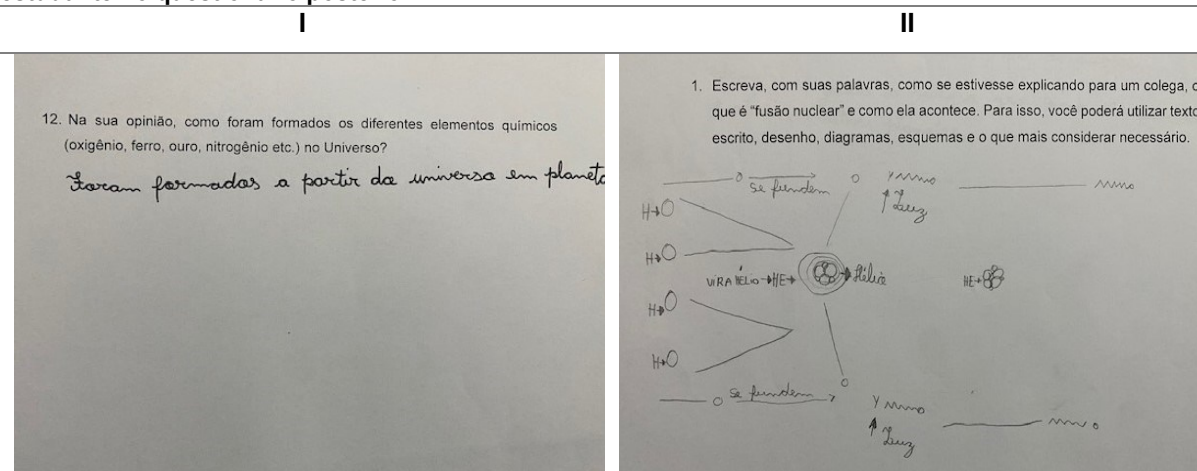 I
II
12. Na sua opinião, como foram formados os diferentes elementos químicos
(oxigênio, ferro, ouro, nitrogênio etc.) no Universo?
Foram formados a partir da universo em planeta
1. Escreva, com suas palavras, como se estivesse explicando para um colega, o
que é “fusão nuclear” e como ela acontece. Para isso, você poderá utilizar texto
escrito, desenho, diagramas, esquemas e o que mais considerar necessário.
se fundem
Y
Luz
H→
H→
VIRA HÉLIO→HE→
→Hélio
HE→
H→
H→
se fundem
Y
Luz